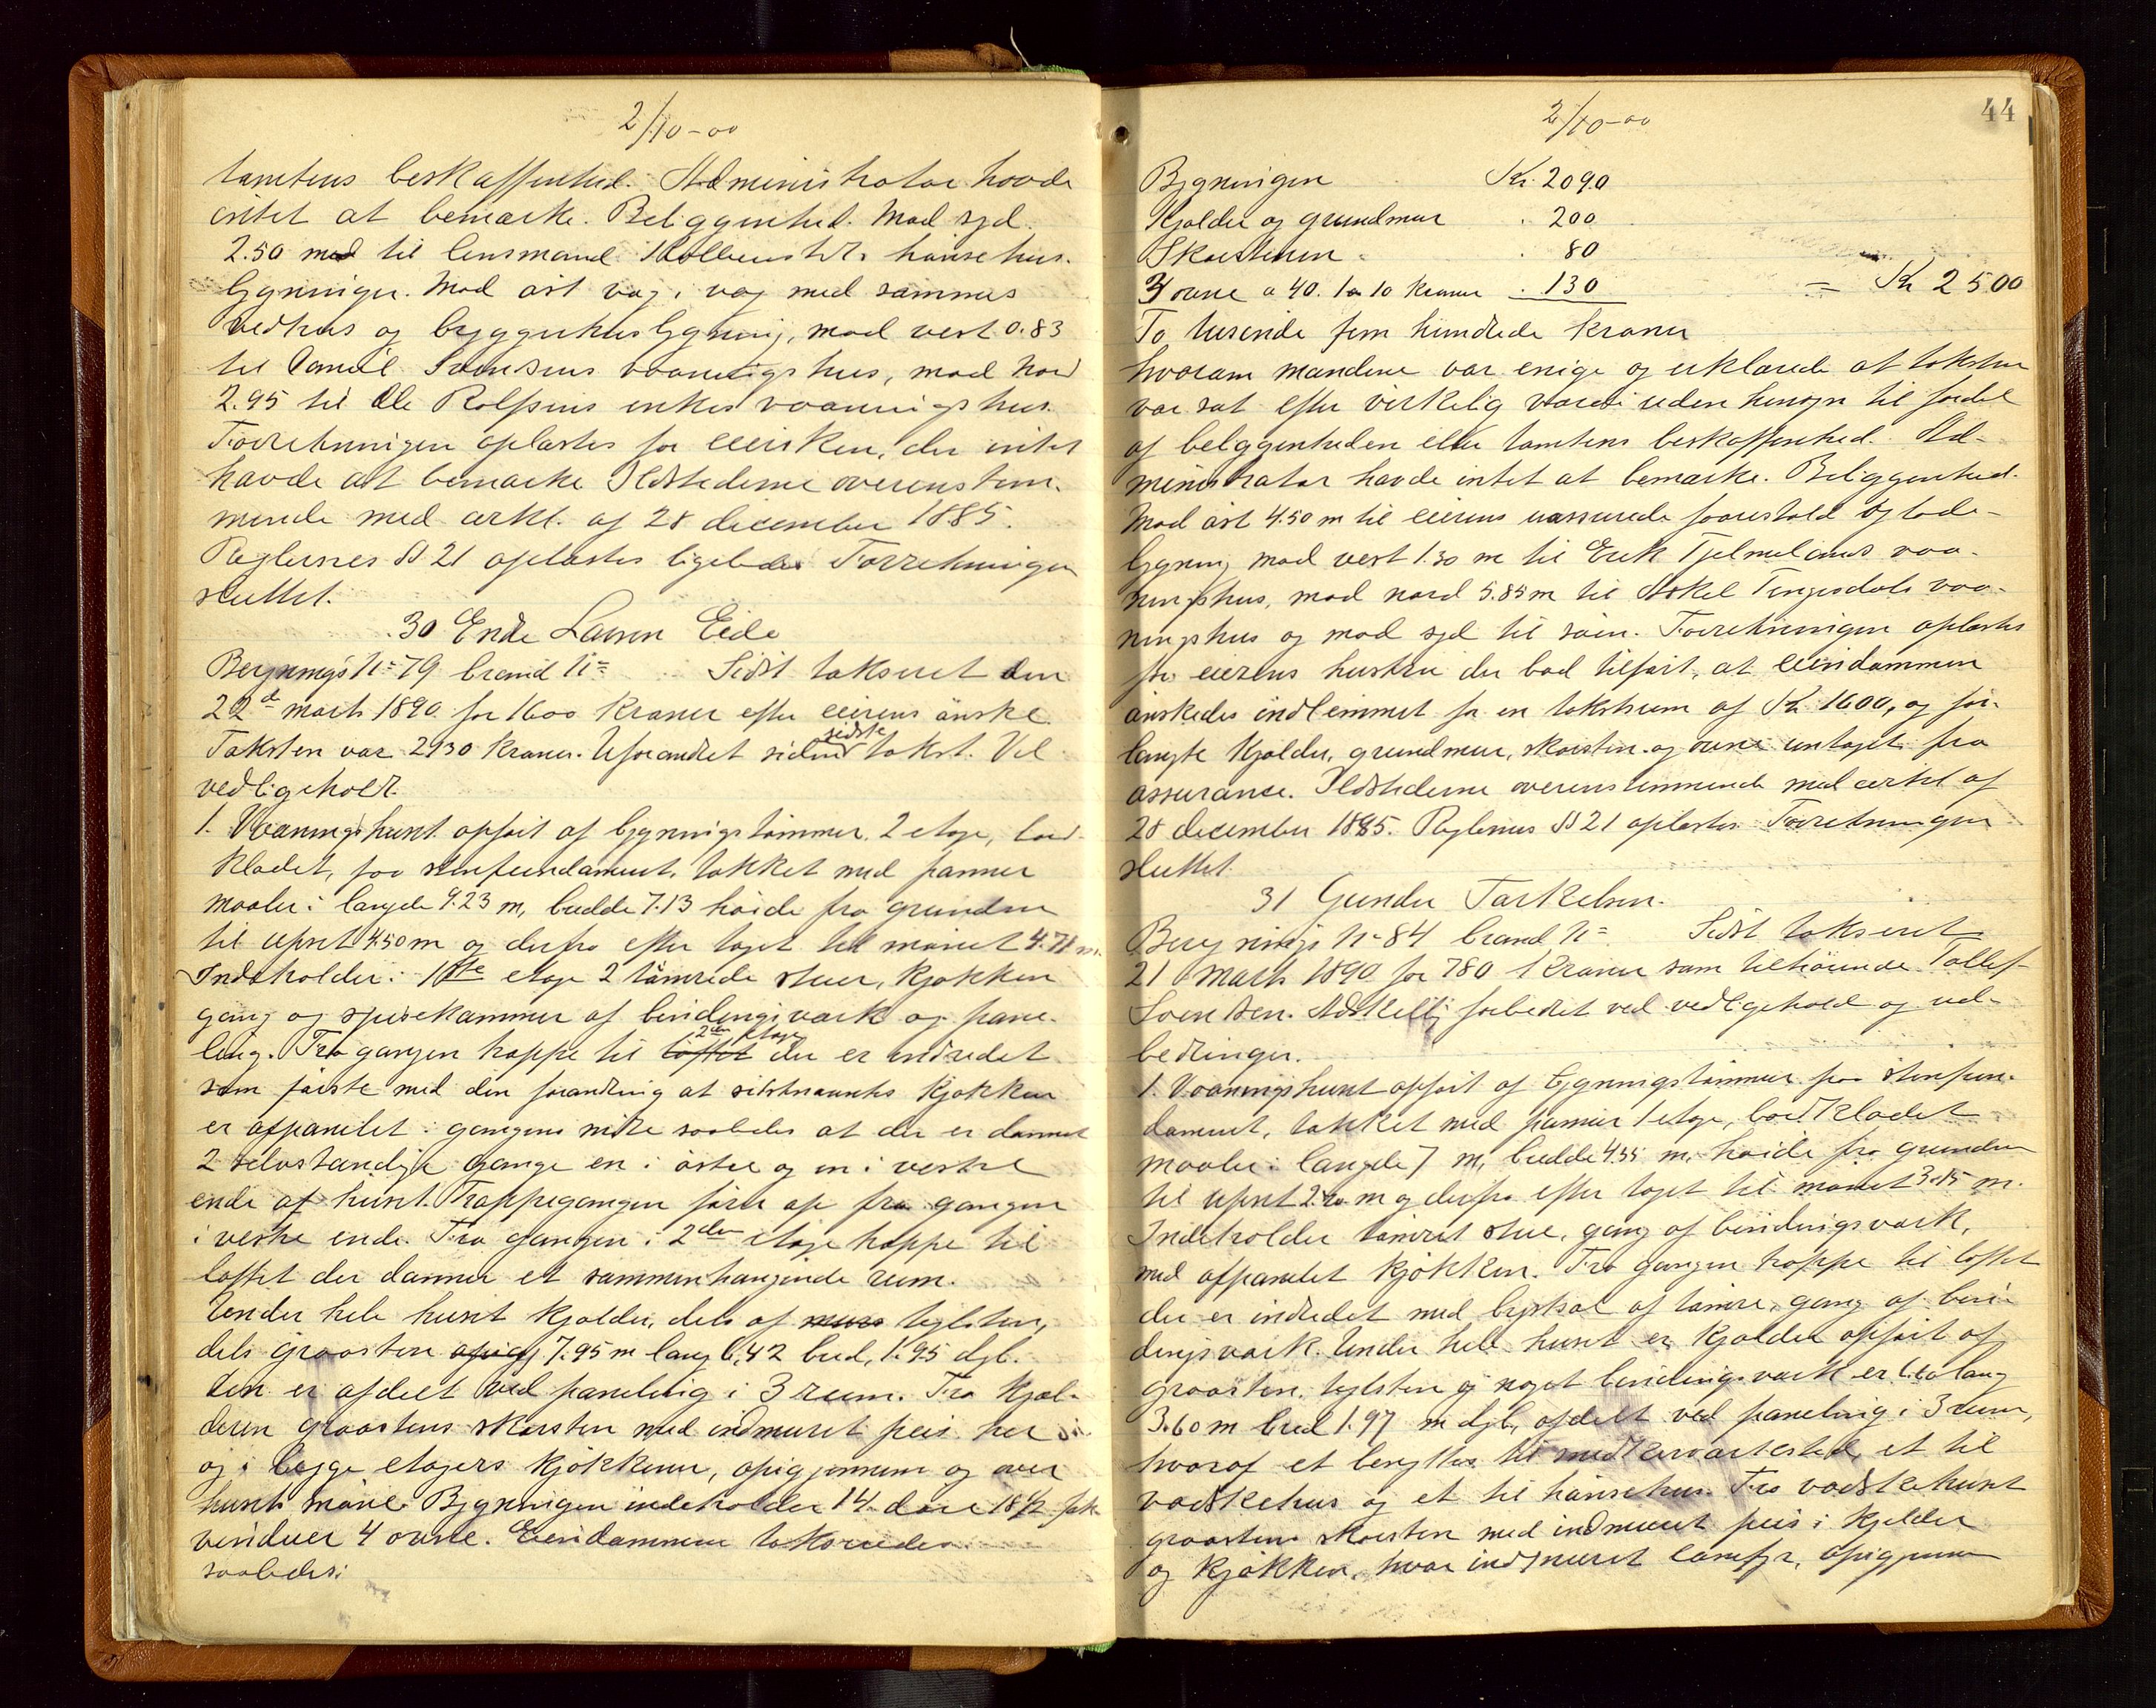 2/10-00
tomtens beskaffenhed. Administrator havde
intet at bemærke. Beliggenhed. Mod syd
2.50 m til lensmand Kolbenstvt. hønsehus-
bygninger. Mod øst væg i væg med sammes
vedhus og bryggerhusbygning, mod vest 0.83
til Daniel Svendsens vaaningshus, mod nord
2.95 til Ole Rolfsens enkes vaaningshus.
Forretningen oplæstes for eiersken, der intet
havde at bemærke Ildstederne overenstem-
mende med cirkl. af 28 december 1885.
Reglernes § 21 oplæstes ligeledes Forretningen
sluttet.
30 Endre Larsen Eide
Bergnings No 79 brand No Sidst takseret den
22d marts 1890 for 1600 kroner efter eierens ønske
Taksten var 2130 kroner. Uforandret siden sidste takst. Vel
vedligeholdt.
1. Vaaningshuset opført af bygningstømmer 2 etage, bord-
klædet, paa stenfundament, tækket med panner
maaler: længde 9.23 m, bredde 7.13 høide fra grunden
til upset 4.50 m og derfra efter taget til mønet 4.71 m.
Indeholder: 1ste etage 2 tømrede stuer, kjøkken
gang og spisekammer af bindingsværk og pane-
ling. Fra gangen trappe til 2den etage der er indredet
som første med den forandring at sidstnævnte kjøkken
er afpanelet i gangens midte saaledes at der er dannet
2 selvstændige gange en i østre og en i vestre
ende af huset. Trappegangen fører op fra gangen
i vestre ende. Fra gangen i 2den etage trappe til
loftet der danner et sammenhængende rum.
Under hele huset kjælder, dels af teglsten,
dels graasten 7.95 m lang 6.42 bred, 1.95 dyb.
den er afdelt ved paneling i 3 rum. Fra kjæl-
deren graastens skorsten med indmuret peis her
og i begge etagers kjøkkener, opigjennem og over
husets møne. Bygningen indeholder 14 døre 18 1/2 fak
vinduer 4 ovne. Eiendommen takseredes
saaledes:
2/10-00
44
Bygningen Kr. 2090
Kjælder og grundmur . 200
Skorstenen . 80
3 ovne a 40. 1 a 10 kroner . 130 = Kr 2500
To tusinde fem hundrede kroner
hvorom mændene var enige og erklærede at taksten
var sat efter virkelig værdi uden hensyn til fordel
af beliggenheden eller tomtens beskaffenhed. Ad-
ministrator havde intet at bemærke. Beliggenhed.
Mod øst 4.50 m til eierens uassurede faarestald og lade-
bygning mod vest 1.30 m til Erik Tjelmelands vaa-
ningshus, mod nord 5.85 m til Askel Tengesdals vaa-
ningshus og mod syd til søen. Forretningen oplæstes
for eierens hustru der bad tilført, at eiendommen
ønskedes indlemmet for en takstsum af Kr 1600, og for-
langte kjælder, grundmur, skorsten og ovne untaget fra
assurance. Ildstederne overensstemmende med cirkl af
28 december 1885. Reglernes § 21 oplæstes. Forretningen
sluttet.
31 Gunder Torkelsen.
Bergnings No 84 brand No Sidst takseret
21 marts 1890 for 780 kroner som tilhørende Tollef
Svendsen. Adskellig forbedret ved vedligehold og ud-
bedringer.
1. Vaaningshuset opført af bygningstømmer paa stenfun-
dament, tækket med panner 1 etage, bordklædet
maaler: længde 7 m, bredde 4.55 m, høide fra grunden
til upset 2.20 m og derfra efter taget til mønet 3.15 m.
Indeholder tømret stue, gang af bindingsværk,
med afpanelet kjøkken. Fra gangen trappe til loftet
der er indredet med bystsal af tømre, gang af bin-
dingsværk. Under hele huset er kjælder opført af
graasten, teglsten og noget bindingsværk er 6.60 lang
3.60 m bred 1.97 m dyb, afdelt ved paneling i 3 rum,
hvoraf et benyttes til snedkerværksted, et til
vadskehus og et til hønsehus. Fra vadskehuset
graastens skorsten med indmuret peis i kjelder
og kjøkken, hvor indmuret comfyr, opigjennem